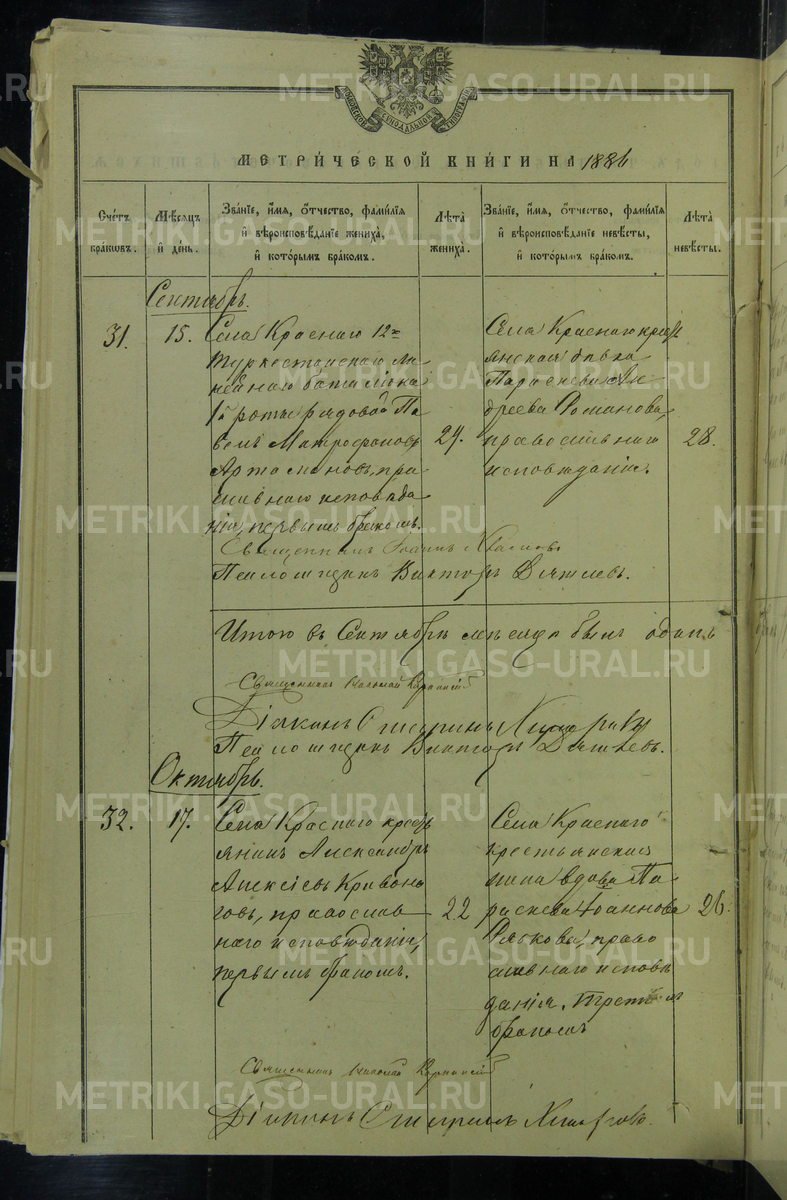 МОСКОВСКОЙ СИНОДАЛЬНОЙ ТИПОГРАФІИ
МЕТРИ́ЧЕСКОЙ КНИ́ГИ НА 1886
Счетъ браковъ.
Мѣсяцъ и день.
Званіе, имя, отчество, фамилія
и вѣроисповѣданіе жениха,
и которымъ бракомъ.
Лѣта жениха.
Званіе, имя, отчество, фамилія
и вѣроисповѣданіе невѣсты,
и которымъ бракомъ.
Лѣта невѣсты.
Сентябрь.
31.
15.
Села Краснаго 12го
Туркестанскаго Ли
нейнаго баталіона
1й роты рядовой Па
велъ Митрофановъ
Артамоновъ, пра
славнаго исповѣда
нія, первымъ бракомъ.
24.
Села Краснаго кресть
янская дѣвка
Параскева Ан
дреева Романова,
православнаго
исповѣданія.
28.
Священникъ Іоаннъ
Псаломщикъ Викторъ Дягилевъ.
Итого въ Сентябрѣ мѣсяцѣ былъ одинъ
Священникъ Николай
Діаконъ
Псаломщикъ Викторъ Дягилевъ.
Октябрь.
32.
17.
Села Краснаго кресть
янинъ Александръ
Алексіевъ Кривоно
говъ, православ
наго исповѣданія,
первымъ бракомъ.
22
Села Краснаго
крестьянская
жена вдова Па
раскева Іоаннова
Рыжкова, право
славнаго исповѣ
данія, третьимъ
бракомъ
26.
Священникъ Николай
Діаконъ
METRIKI.GASO-URAL.RU